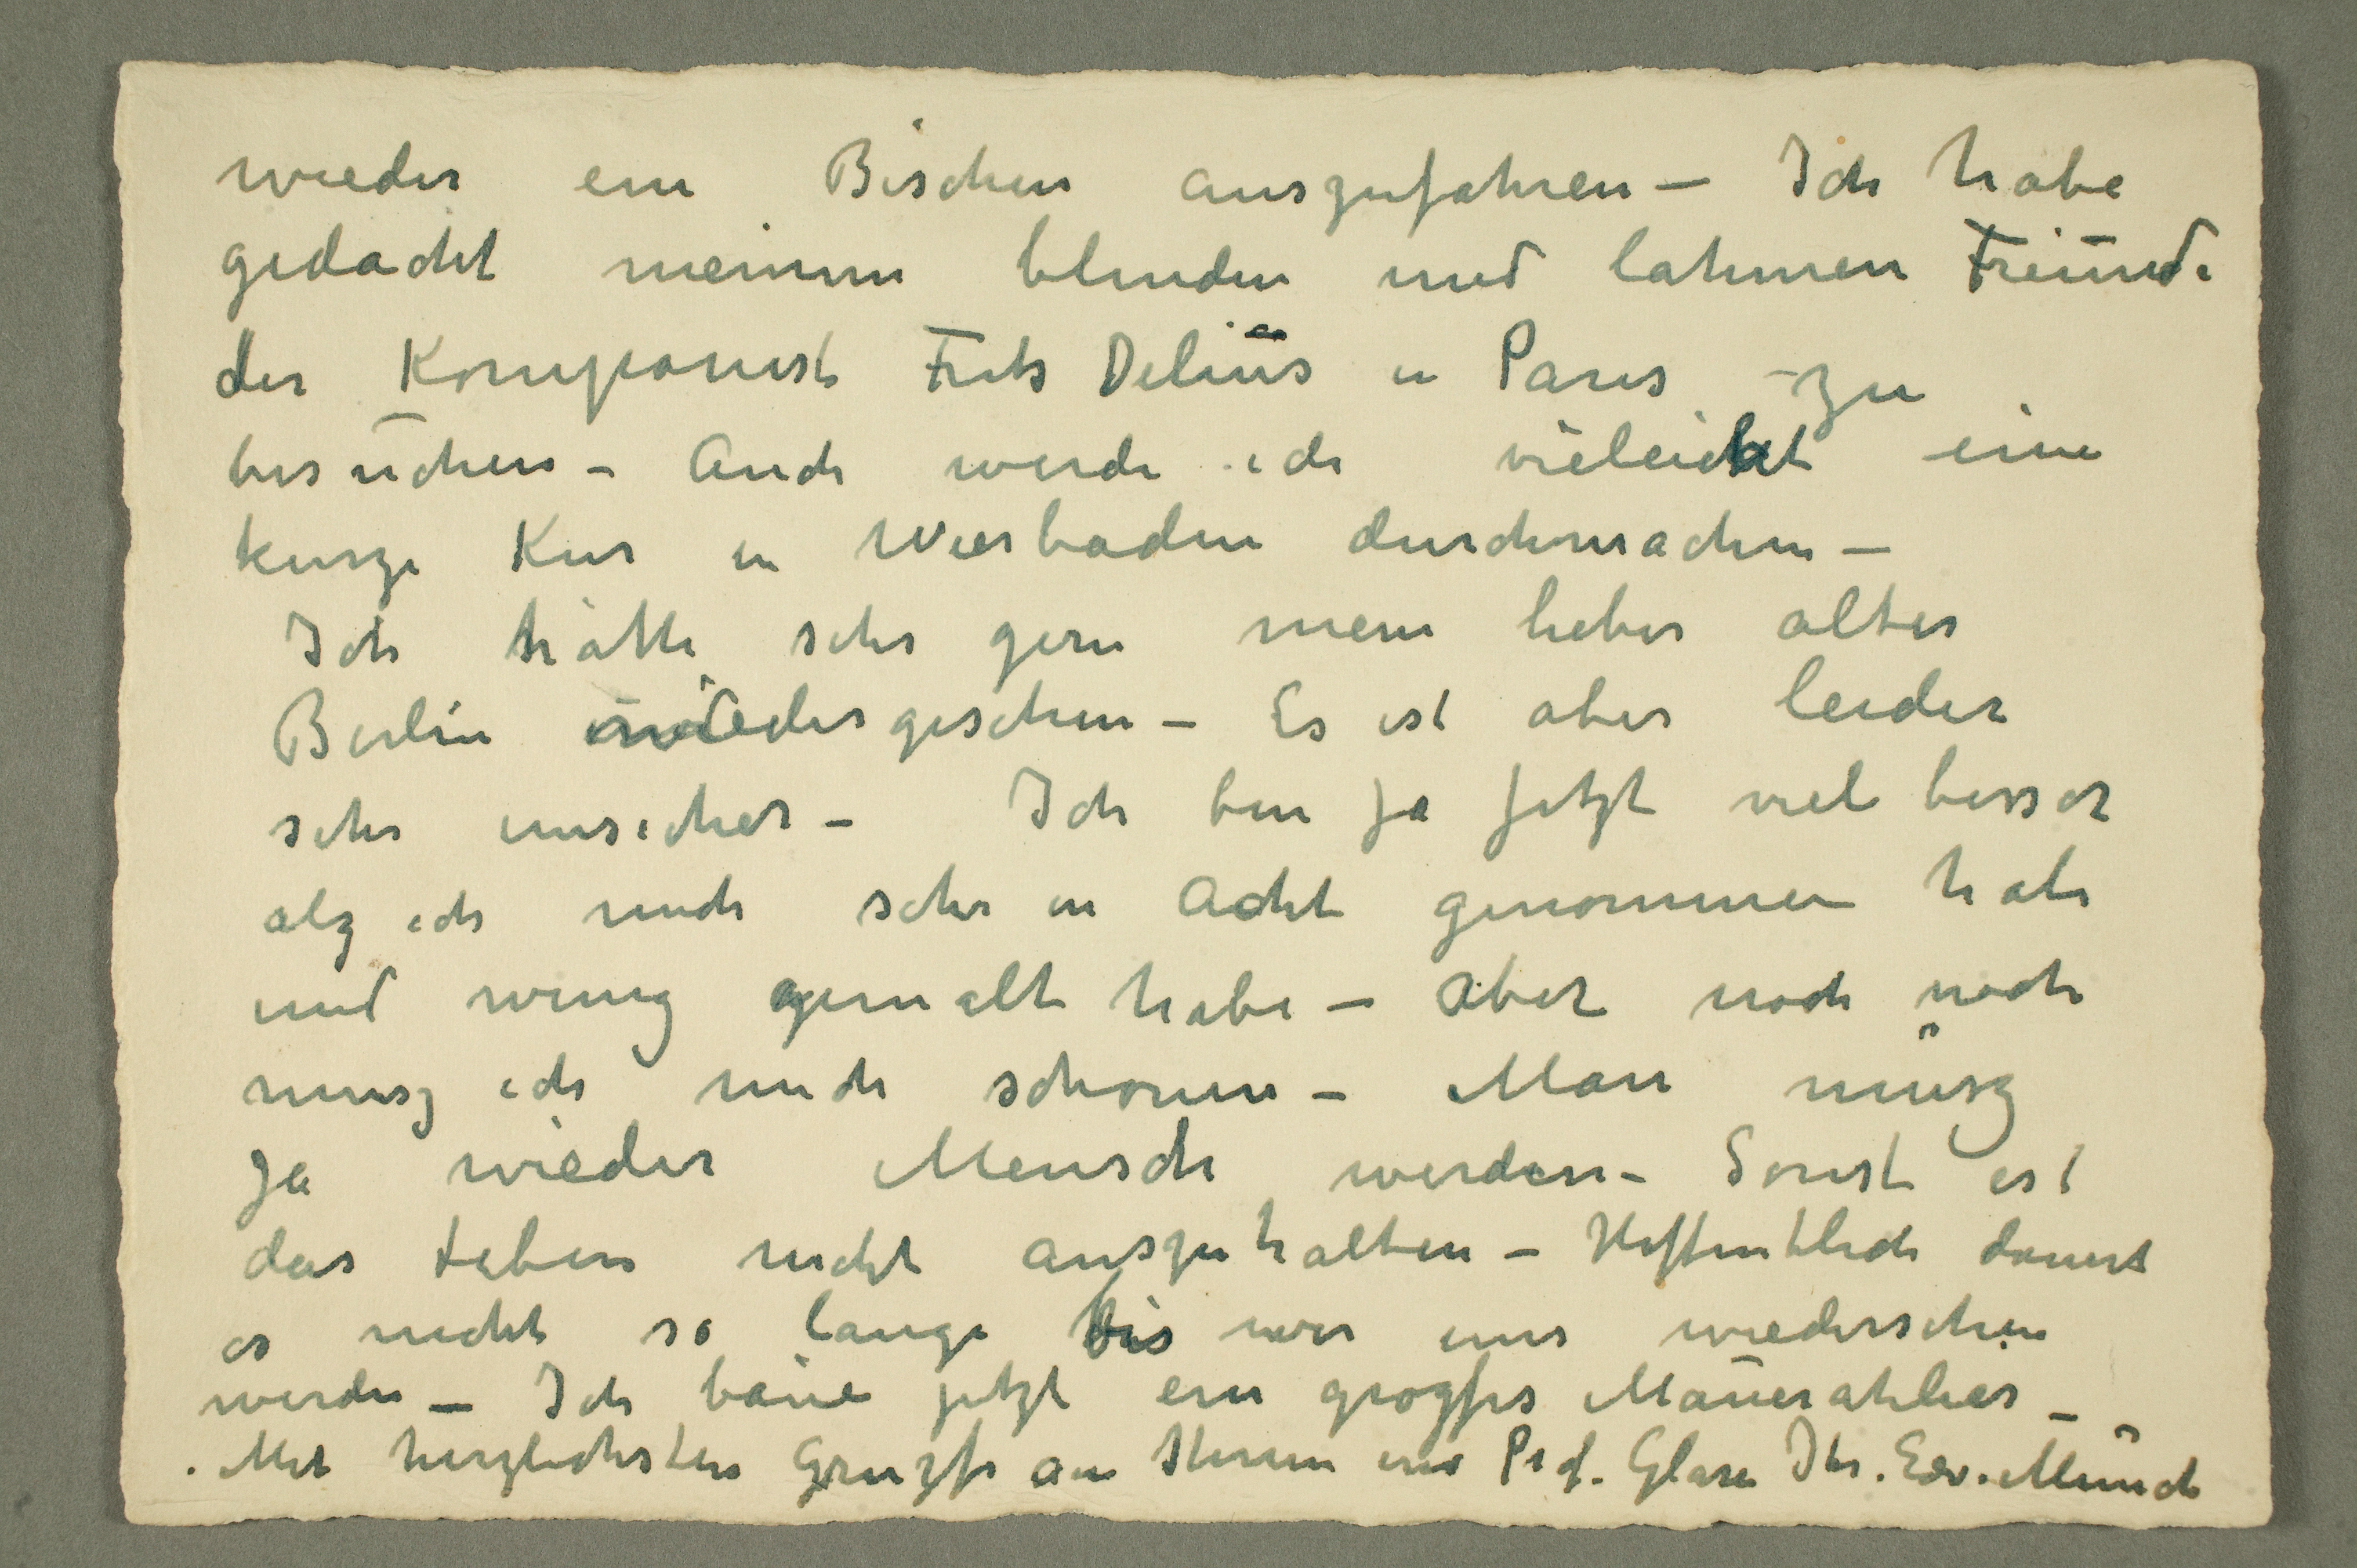 wieder ein Bischen auszufahren – Ich habe
gedacht meinem blinden und lahmen Freunde
der Komponist Frits Delius in Paris – zu
besuchen – Auch werde ich vieleicht eine
kurze Kur in Wiesbaden durchmachen –
Ich hätte sehr gern mein lieber altes
Berlin wiedergesehen – Es ist aber leider
sehr unsicher – Ich bin ja jetzt viel besser
alz ich mich sehr in Acht genommen habe
und wenig gemalt habe – Aber noch noch
musz ich mich schonen – Man musz
ja wieder Mensch werden – Sonst ist
das Leben nicht auszuhalten – Hoffentlich dauert
es nicht so lange bis wir uns wiedersehen
werden – Ich baue jetzt ein groszes Maueratelier –
Mit herzlichsten Gruzse an Ihnen und Prof. Glaser Ihr. Edv. Munch